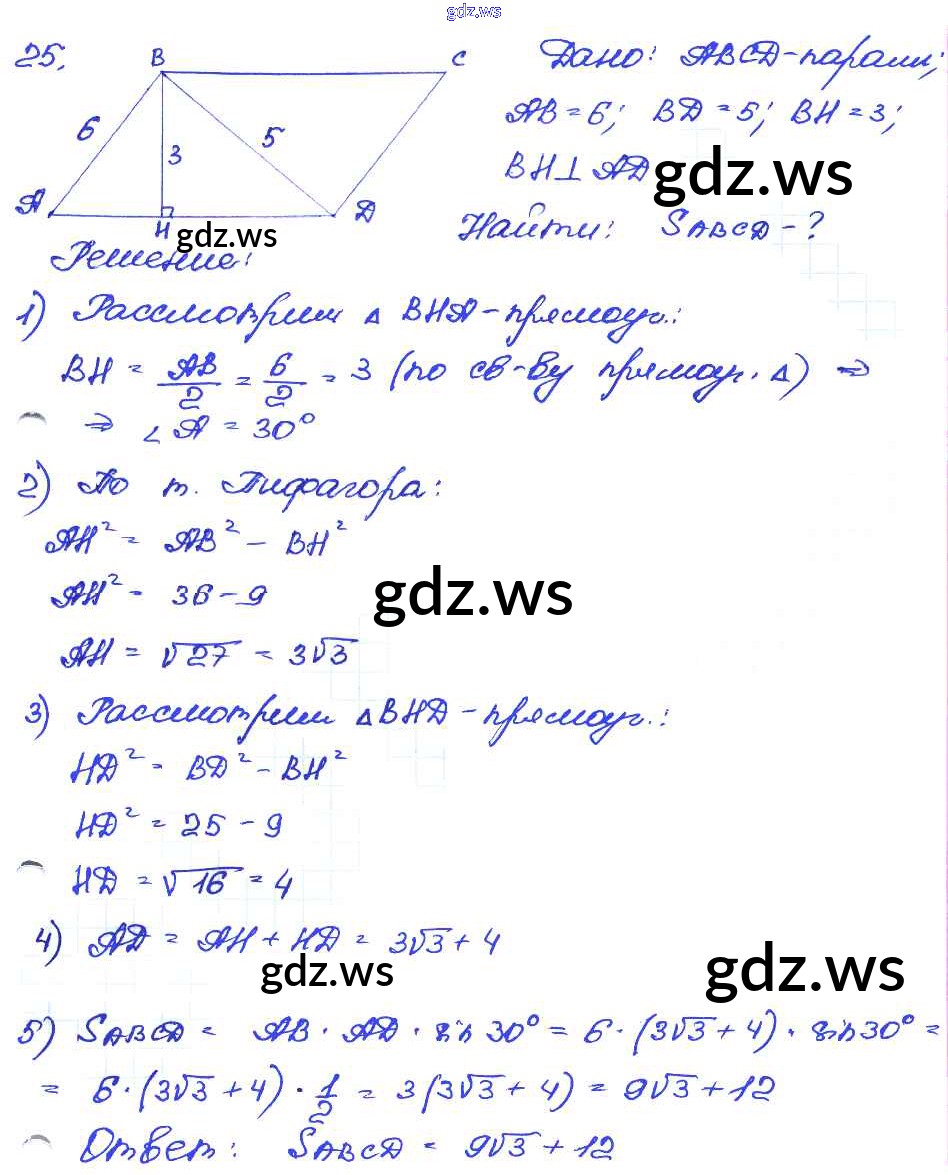 gdz.ws
25.
B C
6 3 5
A H D
Дано: ABCD-паралл;
AB = 6; BD = 5; BH = 3;
BH ⊥ AD
gdz.ws
Найти: SABCD - ?
gdz.ws
Решение:
1) Рассмотрим △ BHA - прямоуг.:
BH = AB/2 = 6/2 = 3 (по св-ву прямоуг. △) ⇒
⇒ ∠A = 30°
2) По т. Пифагора:
AH² = AB² - BH²
AH² = 36 - 9
gdz.ws
AH = √27 = 3√3
3) Рассмотрим △BHD - прямоуг.:
HD² = BD² - BH²
HD² = 25 - 9
HD = √16 = 4
4) AD = AH + HD = 3√3 + 4
gdz.ws
gdz.ws
5) SABCD = AB · AD · sin 30° = 6 · (3√3 + 4) · sin 30° =
= 6 · (3√3 + 4) · 1/2 = 3(3√3 + 4) = 9√3 + 12
Ответ: SABCD = 9√3 + 12